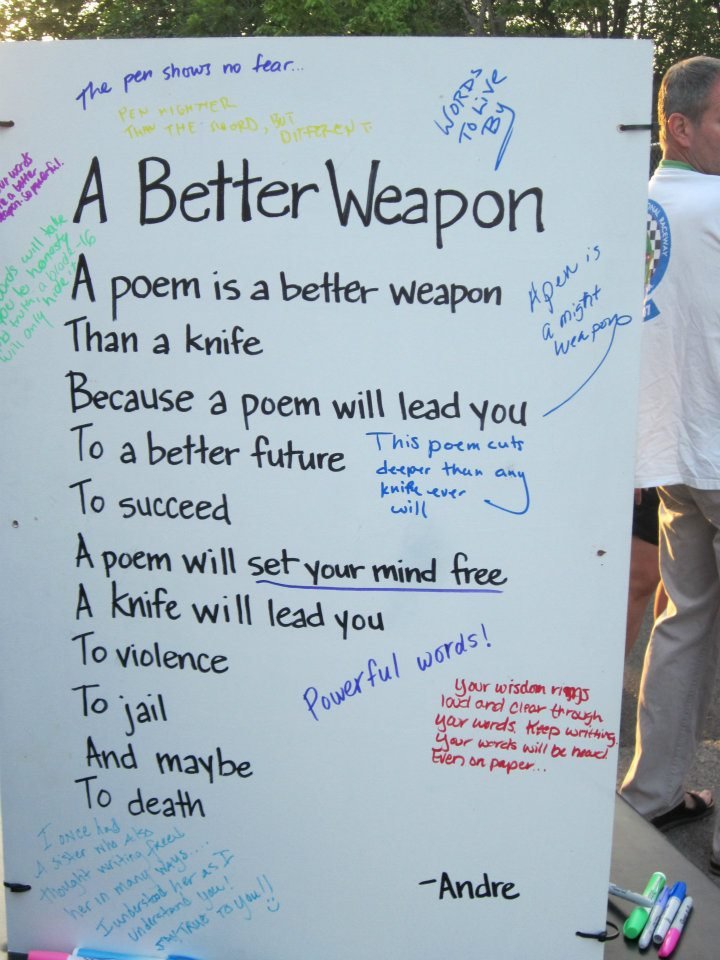 The pen shows no fear...
PEN MIGHTIER
THAN THE SWORD, BUT
DIFFERENT.
WORDS
TO LIVE
BY
words
a better
weapon. so powerful.
A Better Weapon
words will take
you to honesty
and truth, a blade
will only hide it
-16
A poem is a better weapon
Than a knife
Because a poem will lead you
To a better future
To succeed
A poem will set your mind free
A knife will lead you
To violence
To jail
And maybe
To death
-Andre
A pen is
a might
weapon
This poem cuts
deeper than any
knife ever
will
Powerful words!
Your wisdom rings
loud and clear through
your words. Keep writting.
Your words will be heard
Even on paper...
I once had
A sister who also
thought writing freed
her in many ways...
I understood her as I
understand you!
STAY TRUE TO YOU!!
ONAL RACEWAY